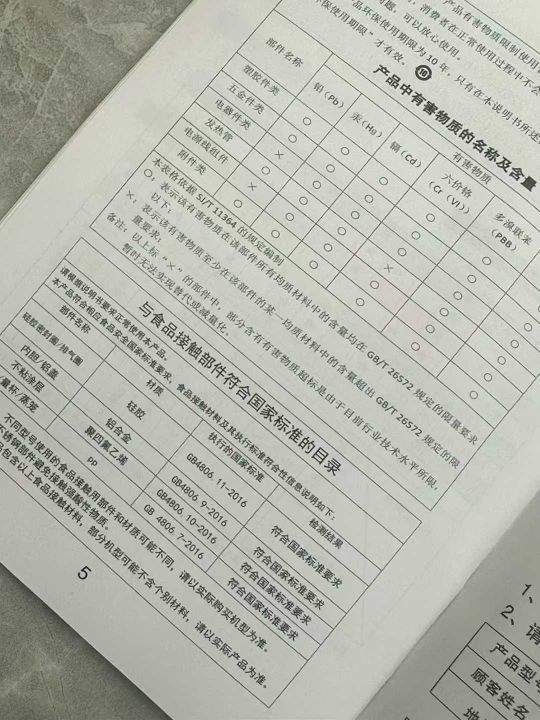 产品有害物质限制使用
消费者在正常使用过程中不会
问题，可以放心使用。
产品环保使用期限为10年，只有在本说明书所述
保使用期限”才有效。 10
产品中有害物质的名称及含量
部件名称 有害物质
铅（Pb） 汞（Hg） 镉（Cd） 六价铬（Cr（VI）） 多溴联苯（PBB）
塑胶件类 ○ ○ ○ ○ ○
五金件类 × ○ ○ ○ ○
电器件类 × ○ ○ ○ ○
发热管
电源线组件
附件类
本表格依据 SJ/T 11364 的规定编制
○：表示该有害物质在该部件所有均质材料中的含量均在 GB/T 26572 规定的限量要求
以下；
×：表示该有害物质至少在该部件的某一均质材料中的含量超出 GB/T 26572 规定的限
量要求；
备注：以上标“×”的部件中，部分含有有害物质超标是由于目前行业技术水平所限，
暂时无法实现替代或减量化。
与食品接触部件符合国家标准的目录
请根据说明书要求正常使用本产品。
本产品符合相应食品安全国家标准要求，食品接触材料及其执行标准符合性信息说明如下：
部件名称 材质 执行的国家标准 检测结果
硅胶密封圈/排气圈 硅胶 GB4806.11-2016 符合国家标准要求
内胆/铝盖 铝合金 GB4806.9-2016 符合国家标准要求
不粘涂层 聚四氟乙烯 GB4806.10-2016 符合国家标准要求
量杯/蒸笼 PP GB 4806.7-2016 符合国家标准要求
不同型号使用的食品接触用部件和材质可能不同，请以实际购买机型为准。
不锈钢部件避免接触强酸性物质。
包含以上食品接触材料，部分机型可能不含个别材料，请以实际产品为准。
5
1、
2、请
产品型号
顾客姓名
地